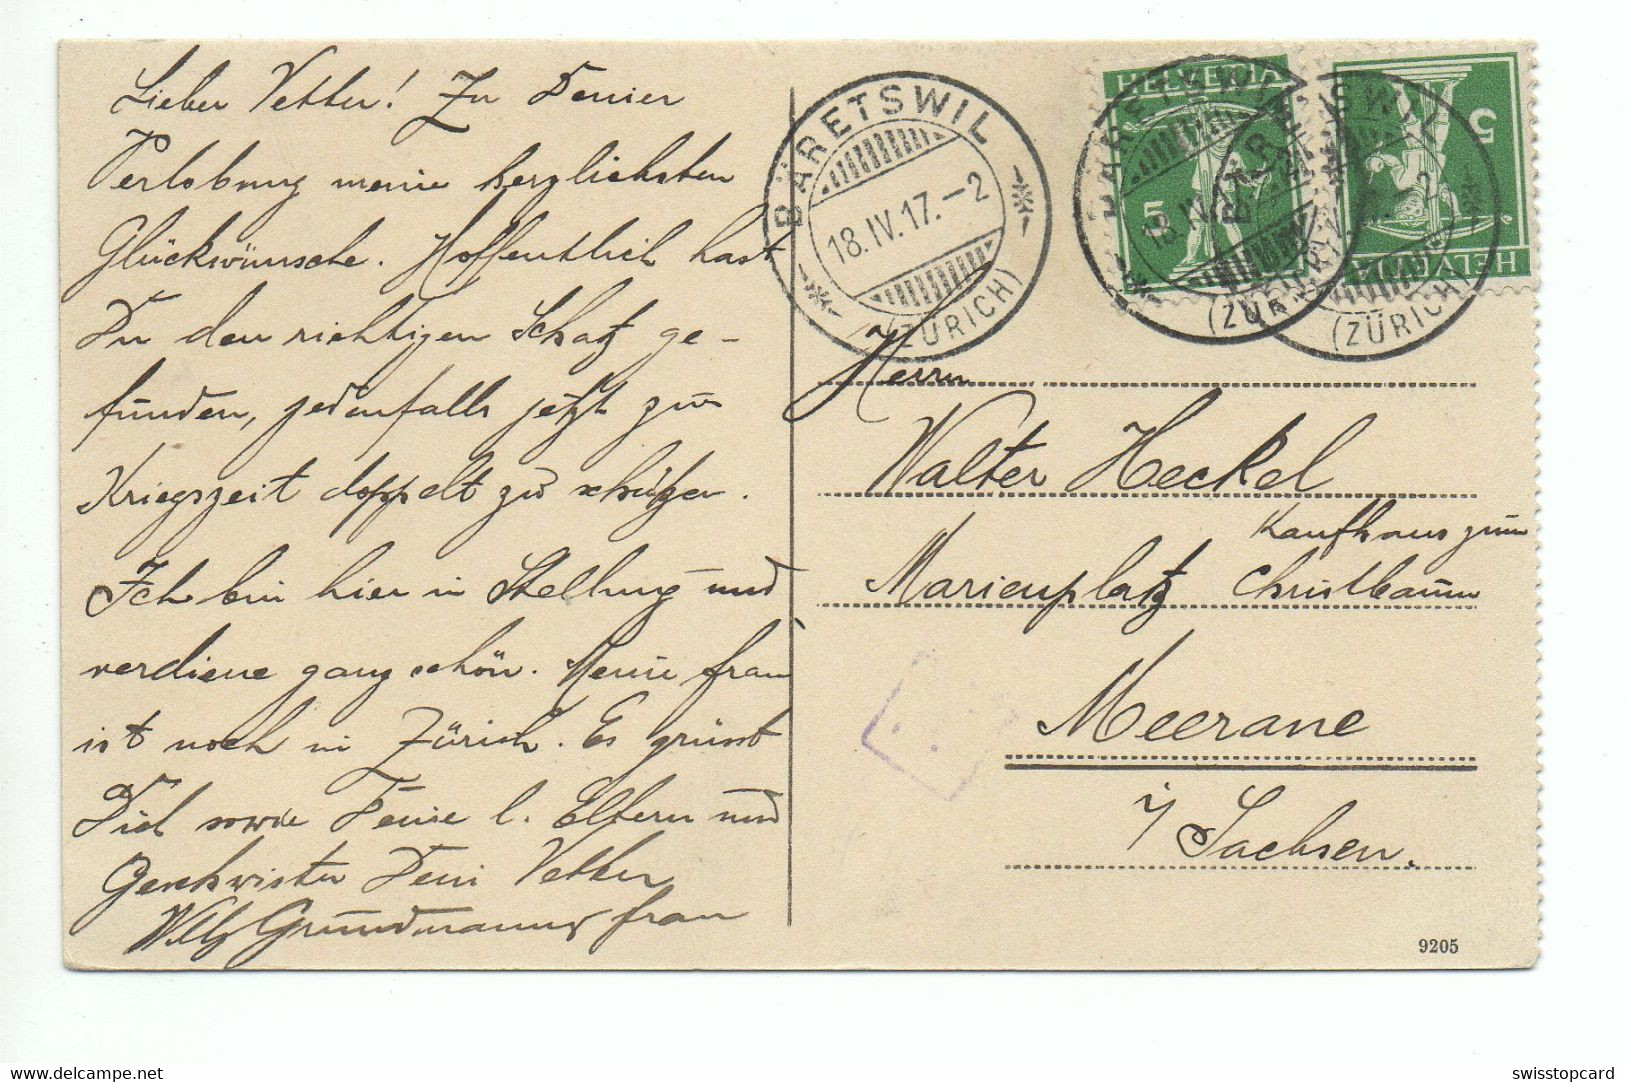 Lieber Vetter! Zu Deiner
Verlobung meine herzlichsten
Glückwünsche. Hoffentlich hast
Du den richtigen Schatz ge-
funden, jedenfalls jetzt zur
Kriegszeit doppelt zu schützen.
Ich bin hier in Stellung und
verdiene ganz schön. Meine frau
ist noch in Zürich. Es grüsst
Dich sowie Deine l. Eltern und
Geschwister Dein Vetter
Willy Grundmann u frau
BÄRETSWIL
18.IV.17.-2
(ZÜRICH)
HELVETIA
5
BÄRETSWIL
18.IV.
(ZÜRICH)
HELVETIA
5
BÄRETSWIL
(ZÜRICH)
Herrn
Walter Heckel
Kaufhaus zum
Marienplatz Christbaum
Meerane
i/ Sachsen.
9205
delcampe.net
swisstopcard